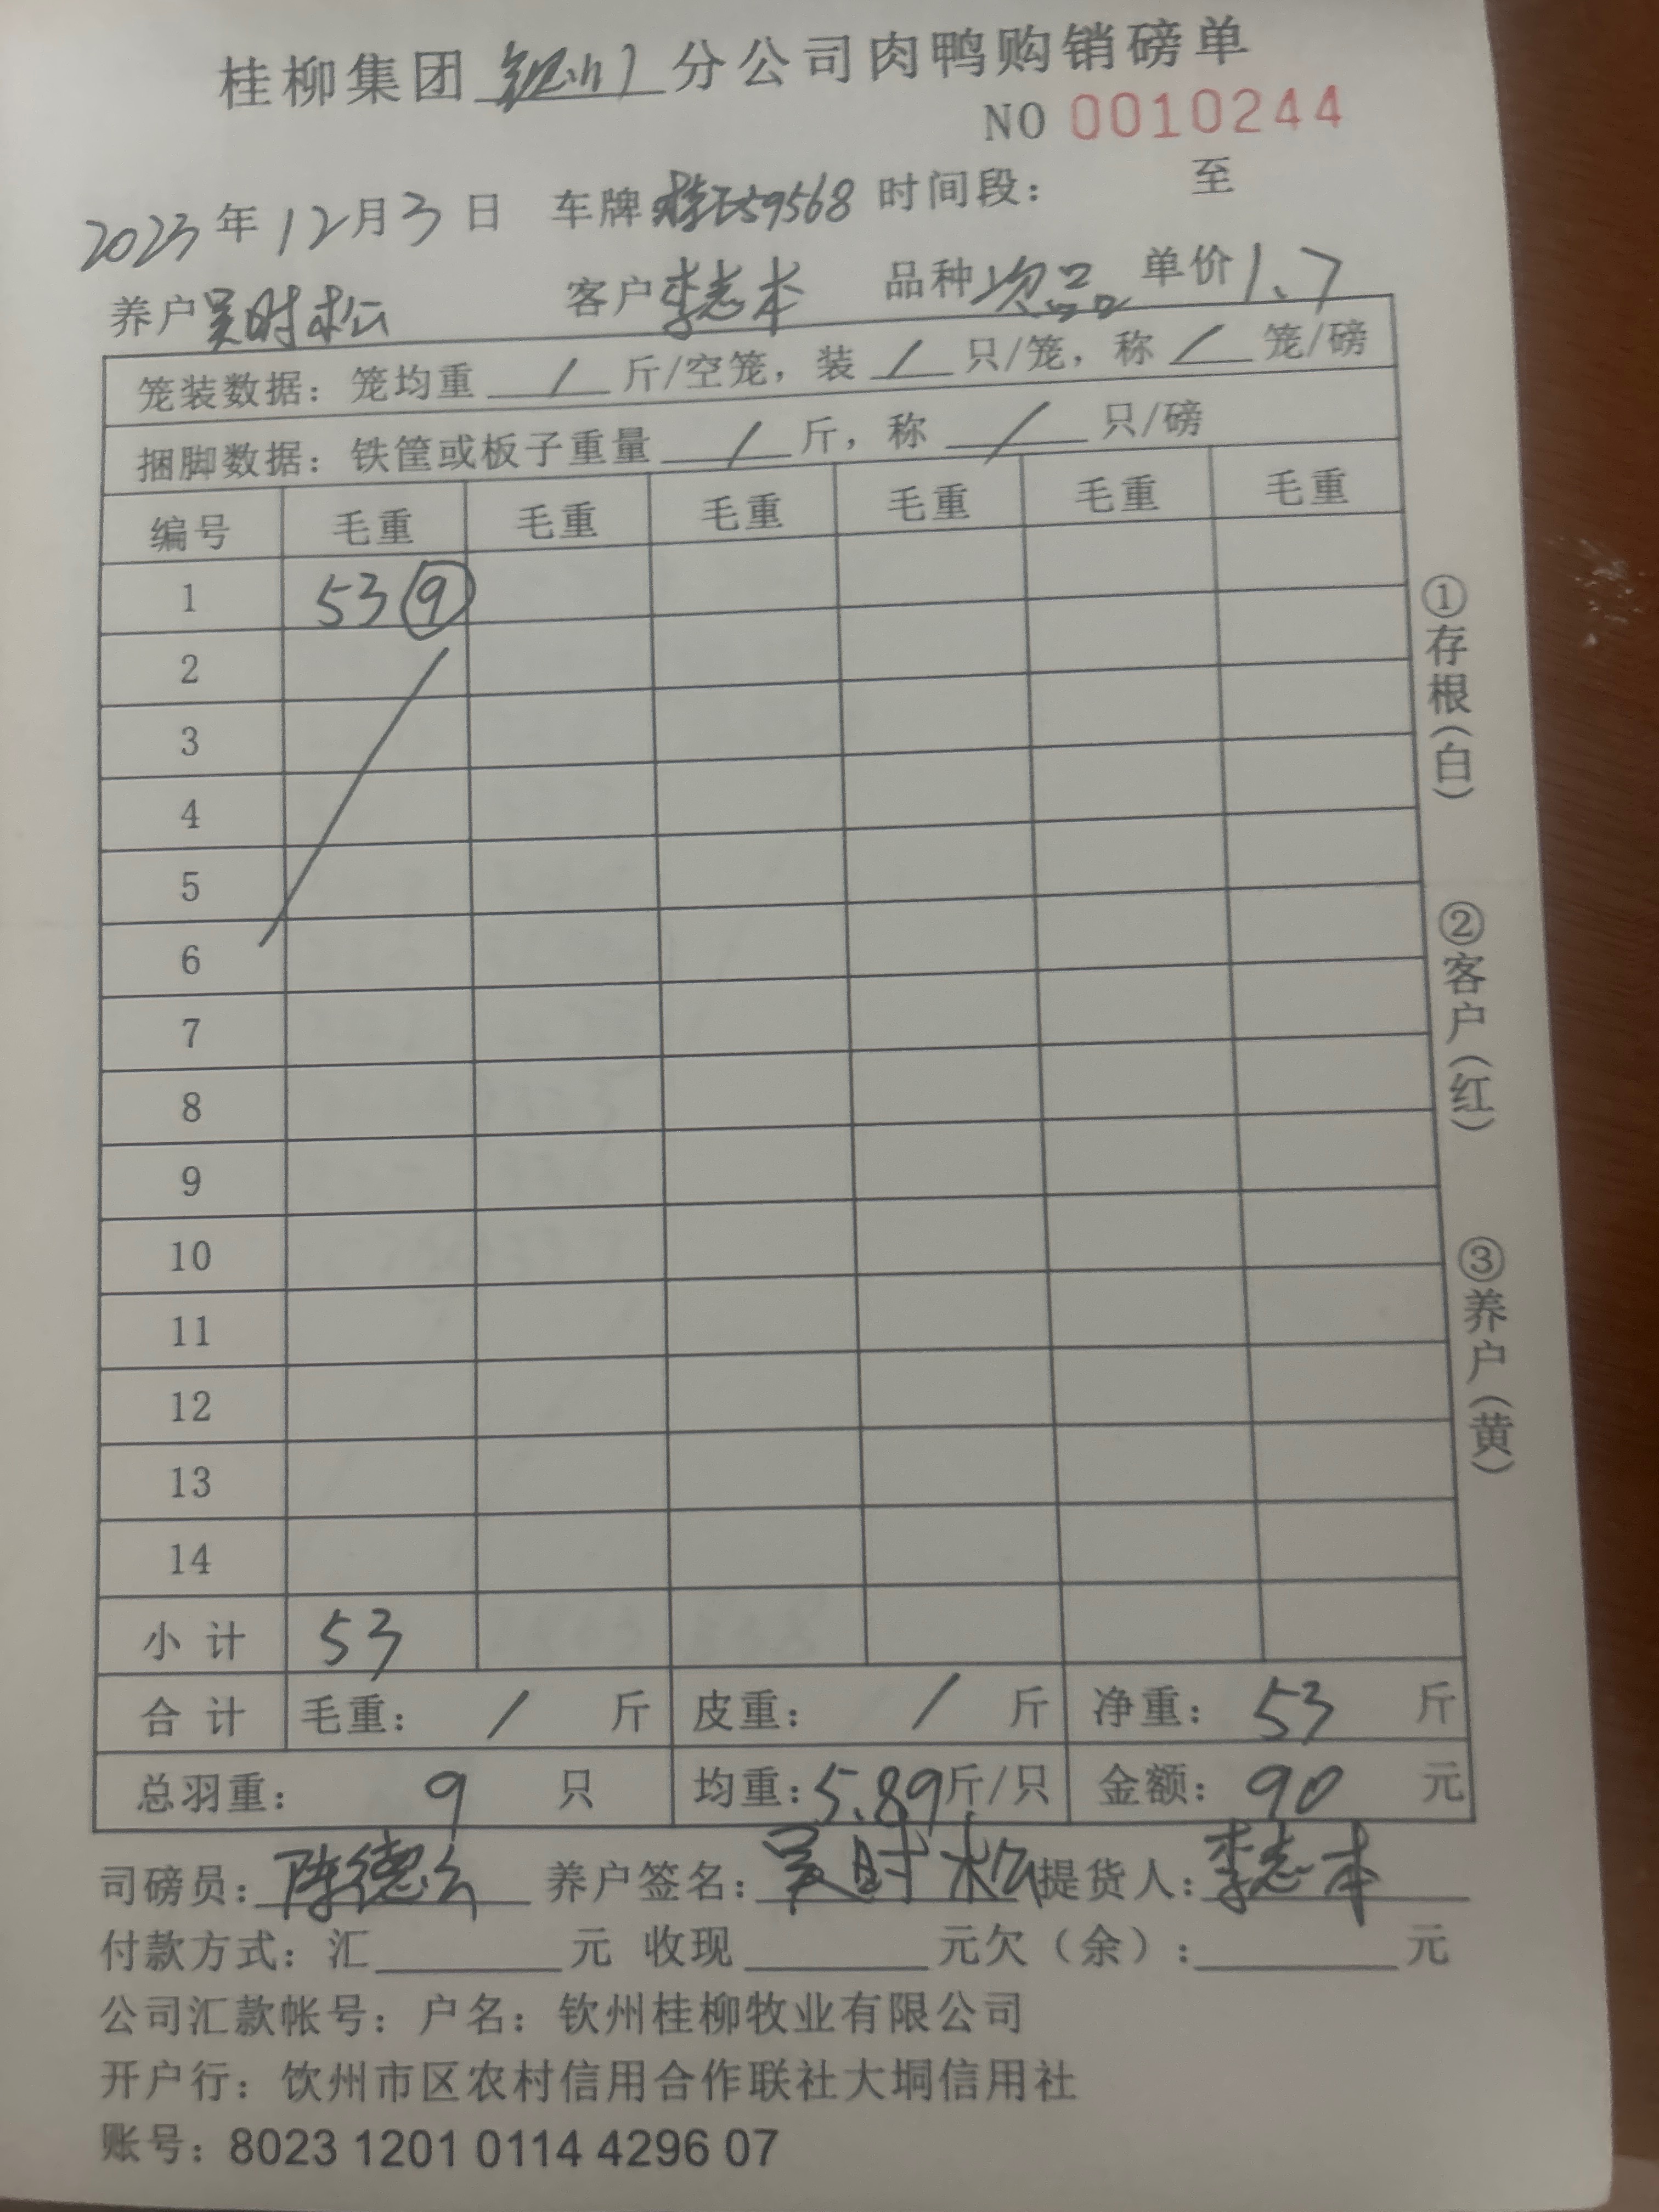 桂柳集团钦州分公司肉鸭购销磅单
NO 0010244
2023年12月3日 车牌59568 时间段： 至
养户吴时松 客户李志本 品种次品 单价1.7
笼装数据：笼均重 / 斤/空笼，装 / 只/笼，称 / 笼/磅
捆脚数据：铁筐或板子重量 / 斤，称 / 只/磅
编号 毛重 毛重 毛重 毛重 毛重 毛重
1 53 ⑨
2
3
4
5
6
7
8
9
10
11
12
13
14
小 计 53
合 计 毛重： / 斤 皮重： / 斤 净重：53 斤
总羽重： 9 只 均重：5.89斤/只 金额：90 元
司磅员：陈德 养户签名：吴时松 提货人：李志本
付款方式：汇 元 收现 元欠（余）： 元
公司汇款帐号：户名：钦州桂柳牧业有限公司
开户行：饮州市区农村信用合作联社大垌信用社
账号：8023 1201 0114 4296 07
①存根（白）
②客户（红）
③养户（黄）